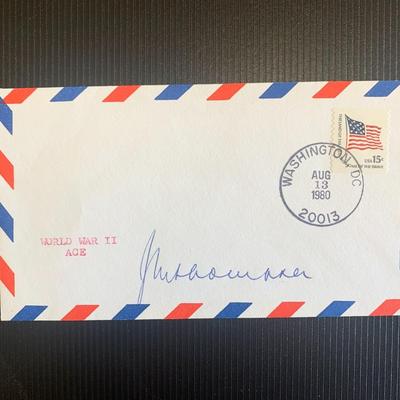 WASHINGTON, DC
AUG
13
1980
20013
USA 15c
WORLD WAR II
ACE